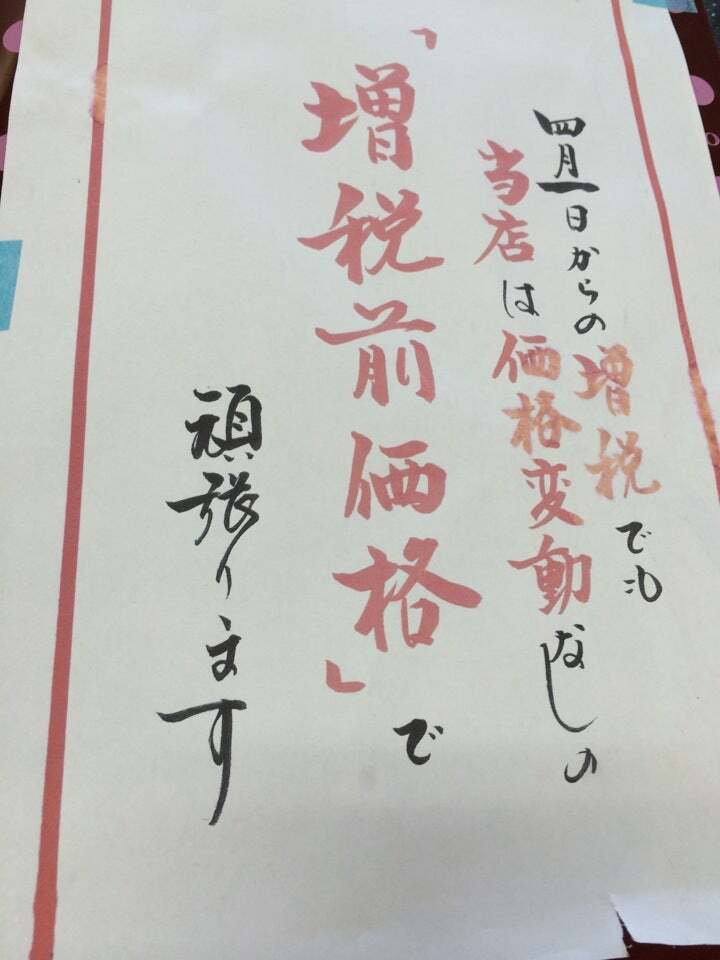 四月一日からの増税でも
当店は価格変動なしの
「増税前価格」で
頑張ります